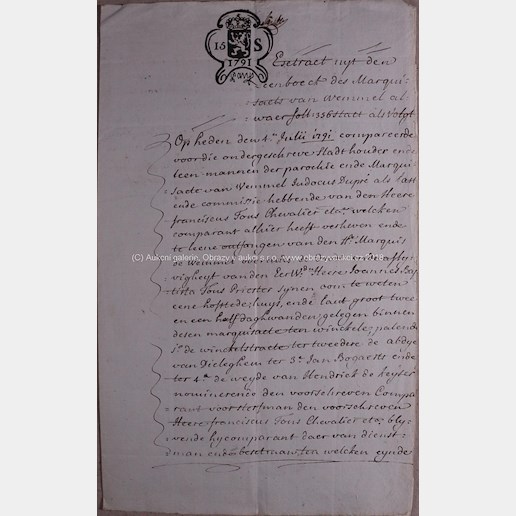 15 S
1791
Extract uyt den
Leenboeck des Marqui-
saets van Wemmel al
waer foll: 336 staet als volgt
Op heden den 4.en Julii 1791 compareerde
voor die ondergeschreve Stadthouder ende
leen mannen der parochie ende Marqui
saete van Wemmel Judocus Dupré als last
ende commissie hebbende van den Heere
franciscus Tons Chevalier etc.a welcken
comparant alhier heeft verheven ende
te leene ontfangen van den H.e Marquis
de Wemmel
(C) Aukční galerie, Obrazy v aukci s.r.o., www.obrazyvaukci.cz, 2018
vigheyt van den Eer W.den Heere Joannes Bap
tista Tons Priester synen oom te weten
eene hofstede, huys, ende lant groot twee
en een half daghwanden, gelegen binnen
desen marquisaete ten winckele, palende
1.o de winckelstraete ter tweedere de abdye
van Dieleghem ter 3.e Jan Bogaerts ende
ter 4.e de weyde van Hendrick de keyser
nominerende den voorschreven Compa
rant voor sterfman den voorschreven
Heere franciscus Tons Chevalier etc.a bly-
vende hy comparant daer van dienst-
man ende besetman, ten welcken eynde